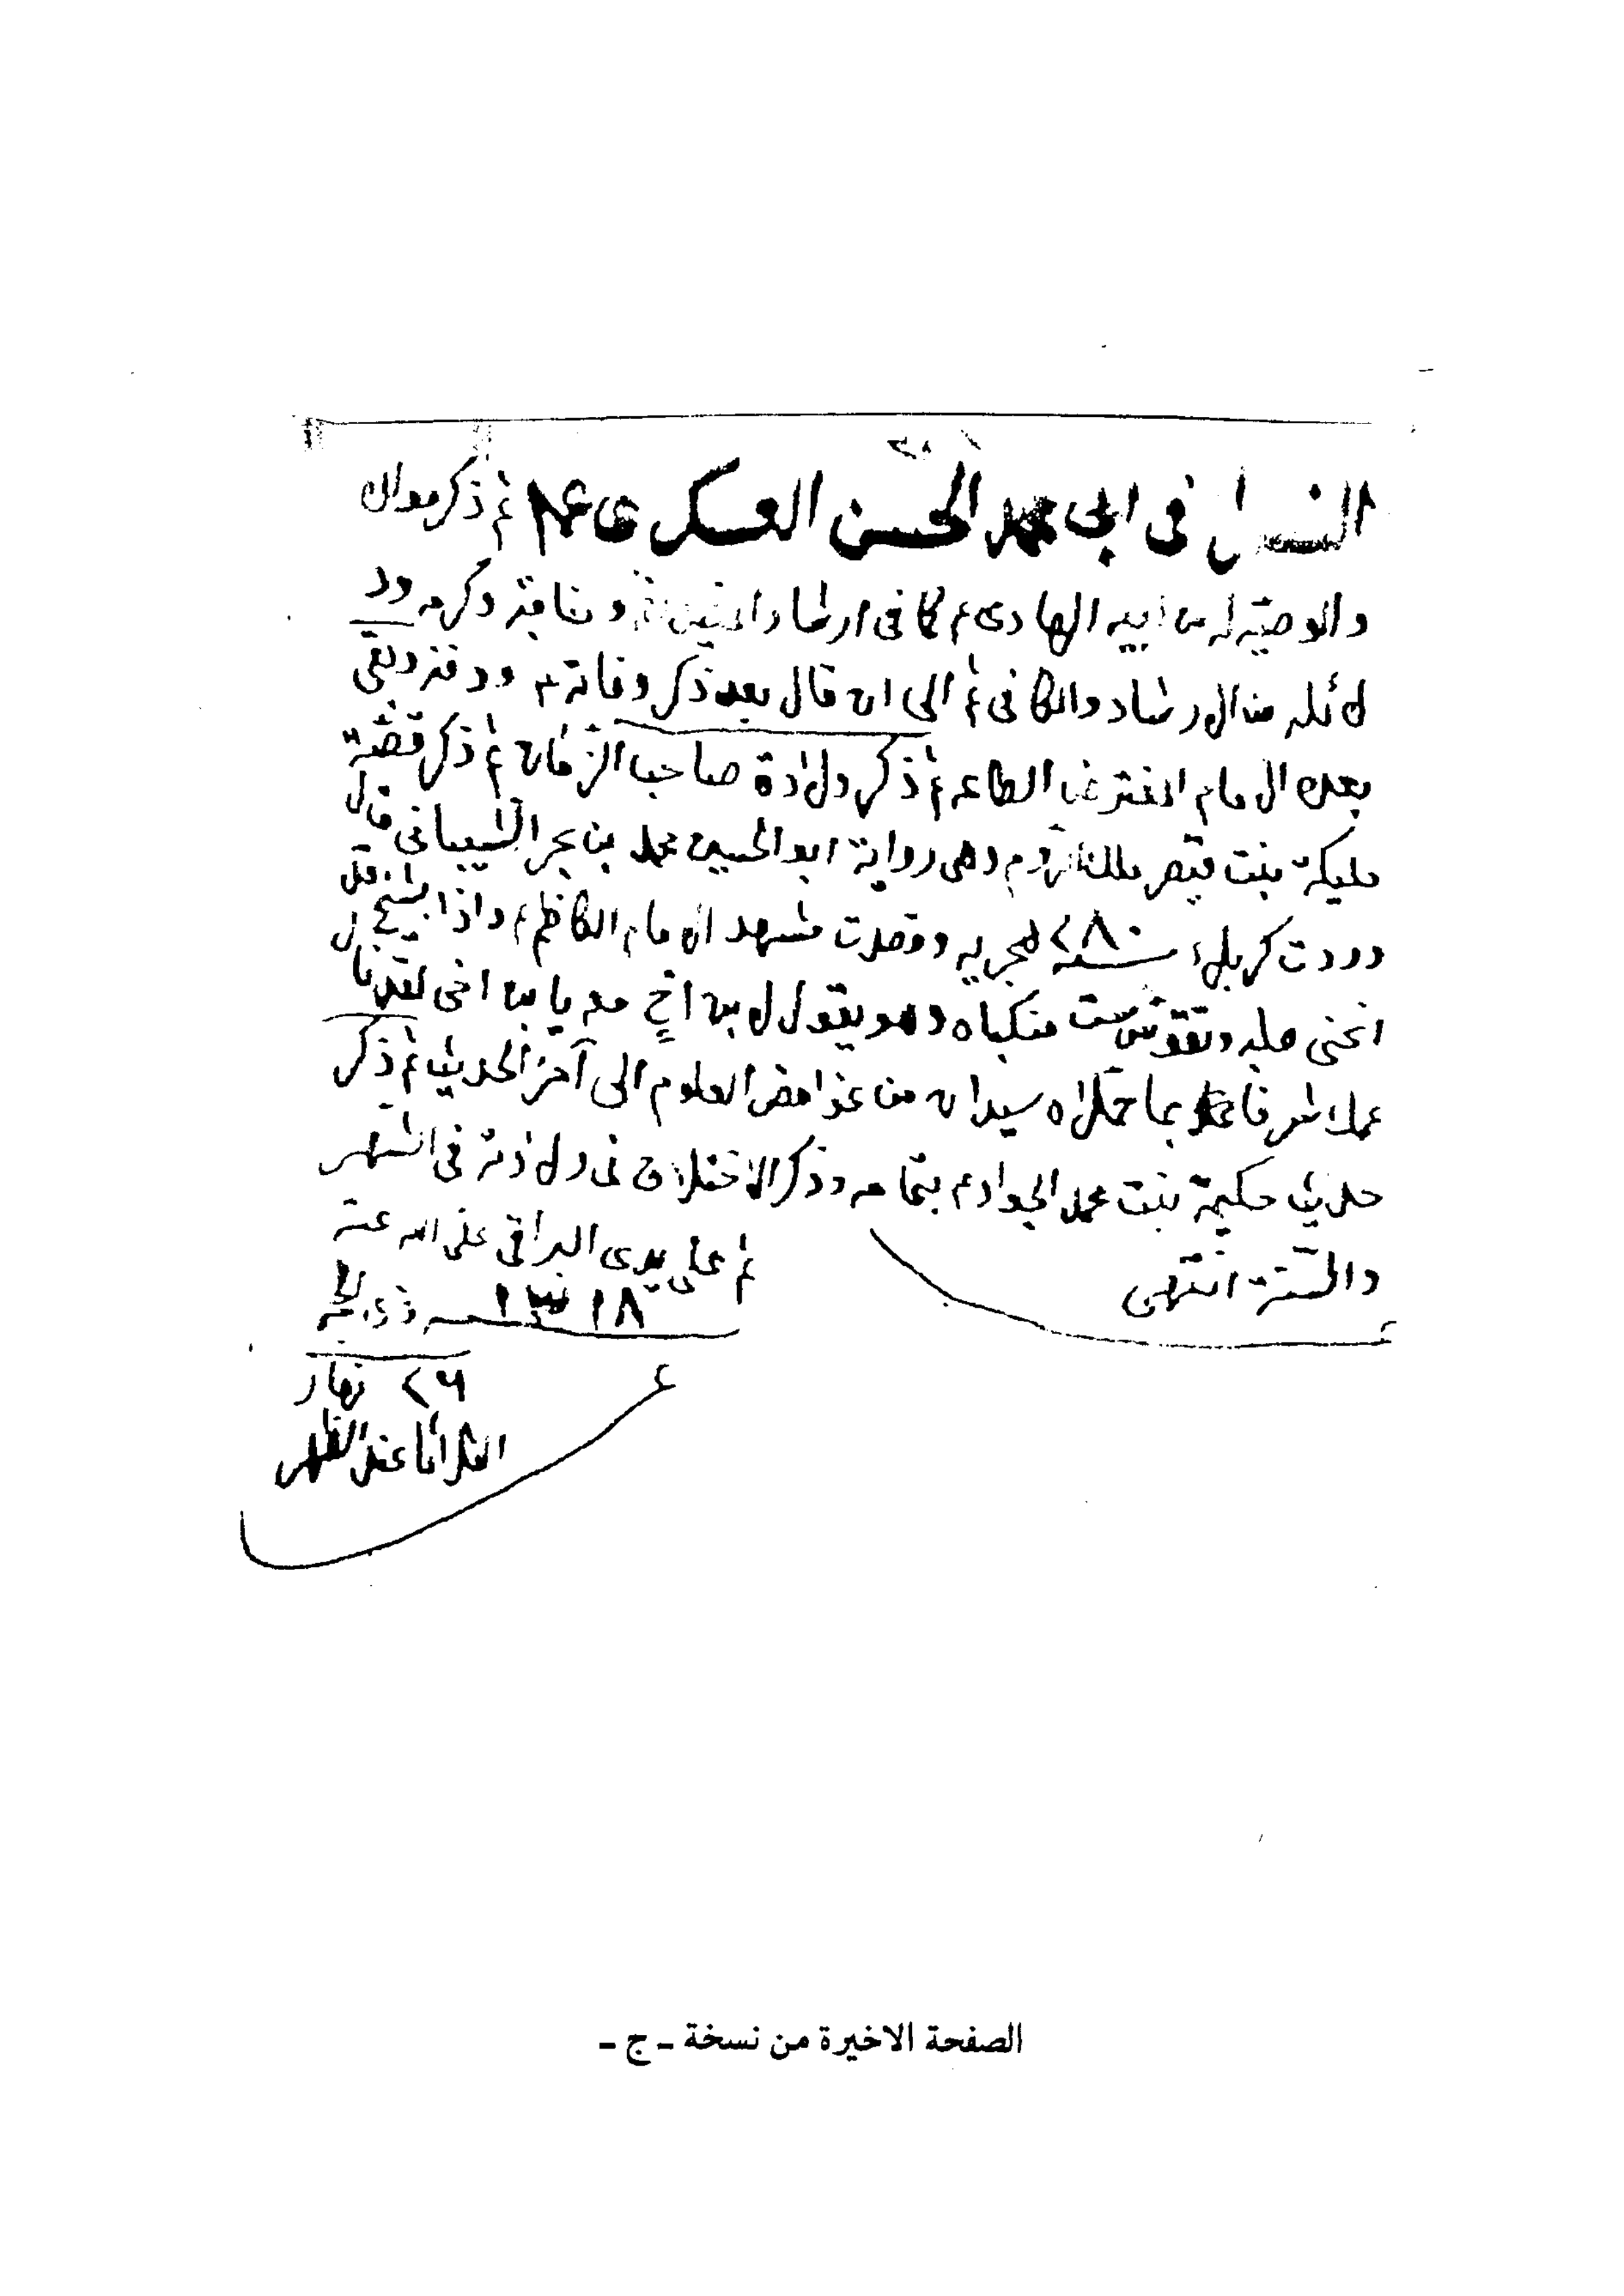 في ابي محمد الحسن العسكري ثم ذكر
والوصية له من ابيه الهادي ع كما في ارشاد المفيد و وذكر
دلائله من الارشاد والكافي ثم الى ان قال بعد ذكر وفاته ودفنه وبقي
بعده الامام المفترض الطاعه ثم ذكر ولادة صاحب الزمان ثم ذكر قصة
مليكة بنت قيصر ملك الروم وهي رواية ابو الحسين محمد بن بحر الشيباني قال
وردت كربلاء سنة ٢٨٠ هجريه وقصدت مشهد الامام الكاظم ع واذا بشيخ قد
انحنى صلبه وتقوست منكباه وهو يقول لابن اخ معه يا بن اخي لقد نال
عمك شرفا بما حملاه سيدان من غوامض العلوم الى آخر الحديث ثم ذكر
حديث حكيمة بنت محمد الجواد ع بتمامه وذكر الاختلاف في ولادته في الشهر
والسنة انتهى
تم على يدي البراقي عفى الله عنه
١٨ ١٣ سنه ذي الحجه
٢٦ نهار
الثلاثا عند الظهر
الصفحة الاخيرة من نسخة ـ ج ـ